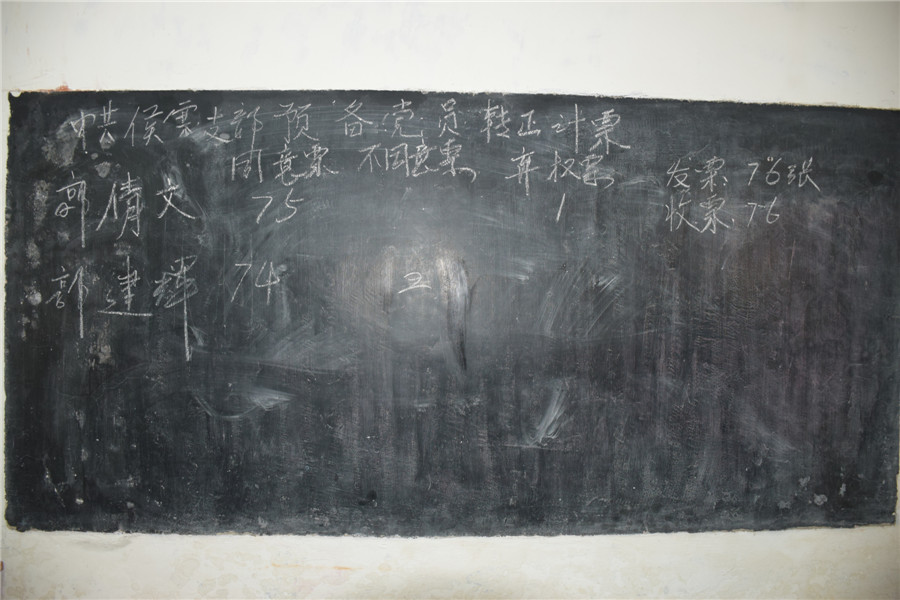 中共侯云支部预备党员转正计票
同意票 不同意票 弃权票 发票 76张
郭倩文 75 1 收票 76
郭建辉 74 2